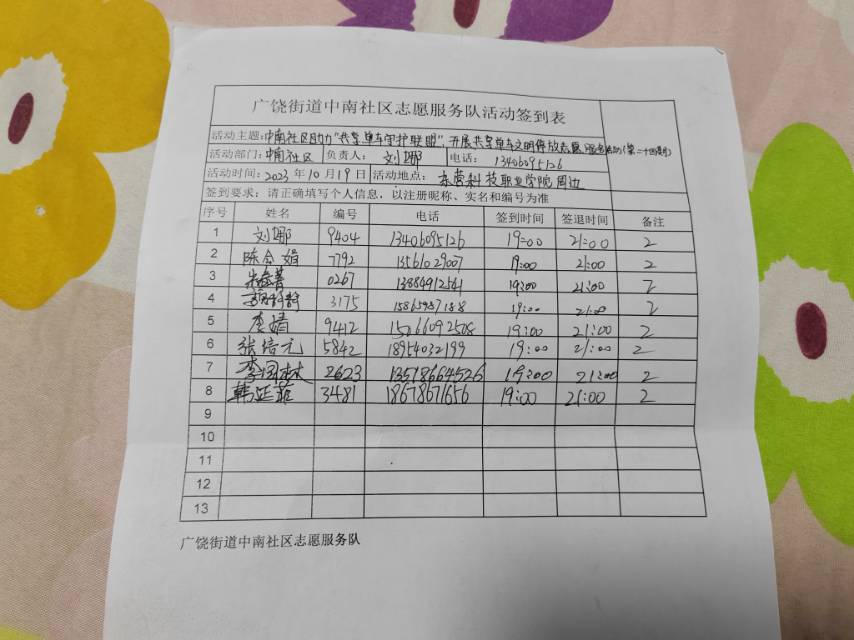 广饶街道中南社区志愿服务队活动签到表
活动主题:中南社区助力"共享单车守护联盟",开展共享单车文明停放志愿服务活动(第二十四期)
活动部门:中南社区 负责人: 刘娜 电话: 13406095126
活动时间:2023年10月19日 活动地点: 东营科技职业学院周边
签到要求:请正确填写个人信息,以注册昵称、实名和编号为准
序号 姓名 编号 电话 签到时间 签退时间 备注
1 刘娜 9404 13406095126 19:00 21:00 2
2 陈会娟 7792 13561029007 19:00 21:00 2
3 0267 13884912561 19:00 21:00 2
4 3175 19:00 21:00 2
5 李婧 9412 19:00 21:00 2
6 张培元 5842 18954032199 19:00 21:00 2
7 2623 13518664526 19:00 21:00 2
8 韩延菲 3481 18678671656 19:00 21:00 2
9
10
11
12
13
广饶街道中南社区志愿服务队